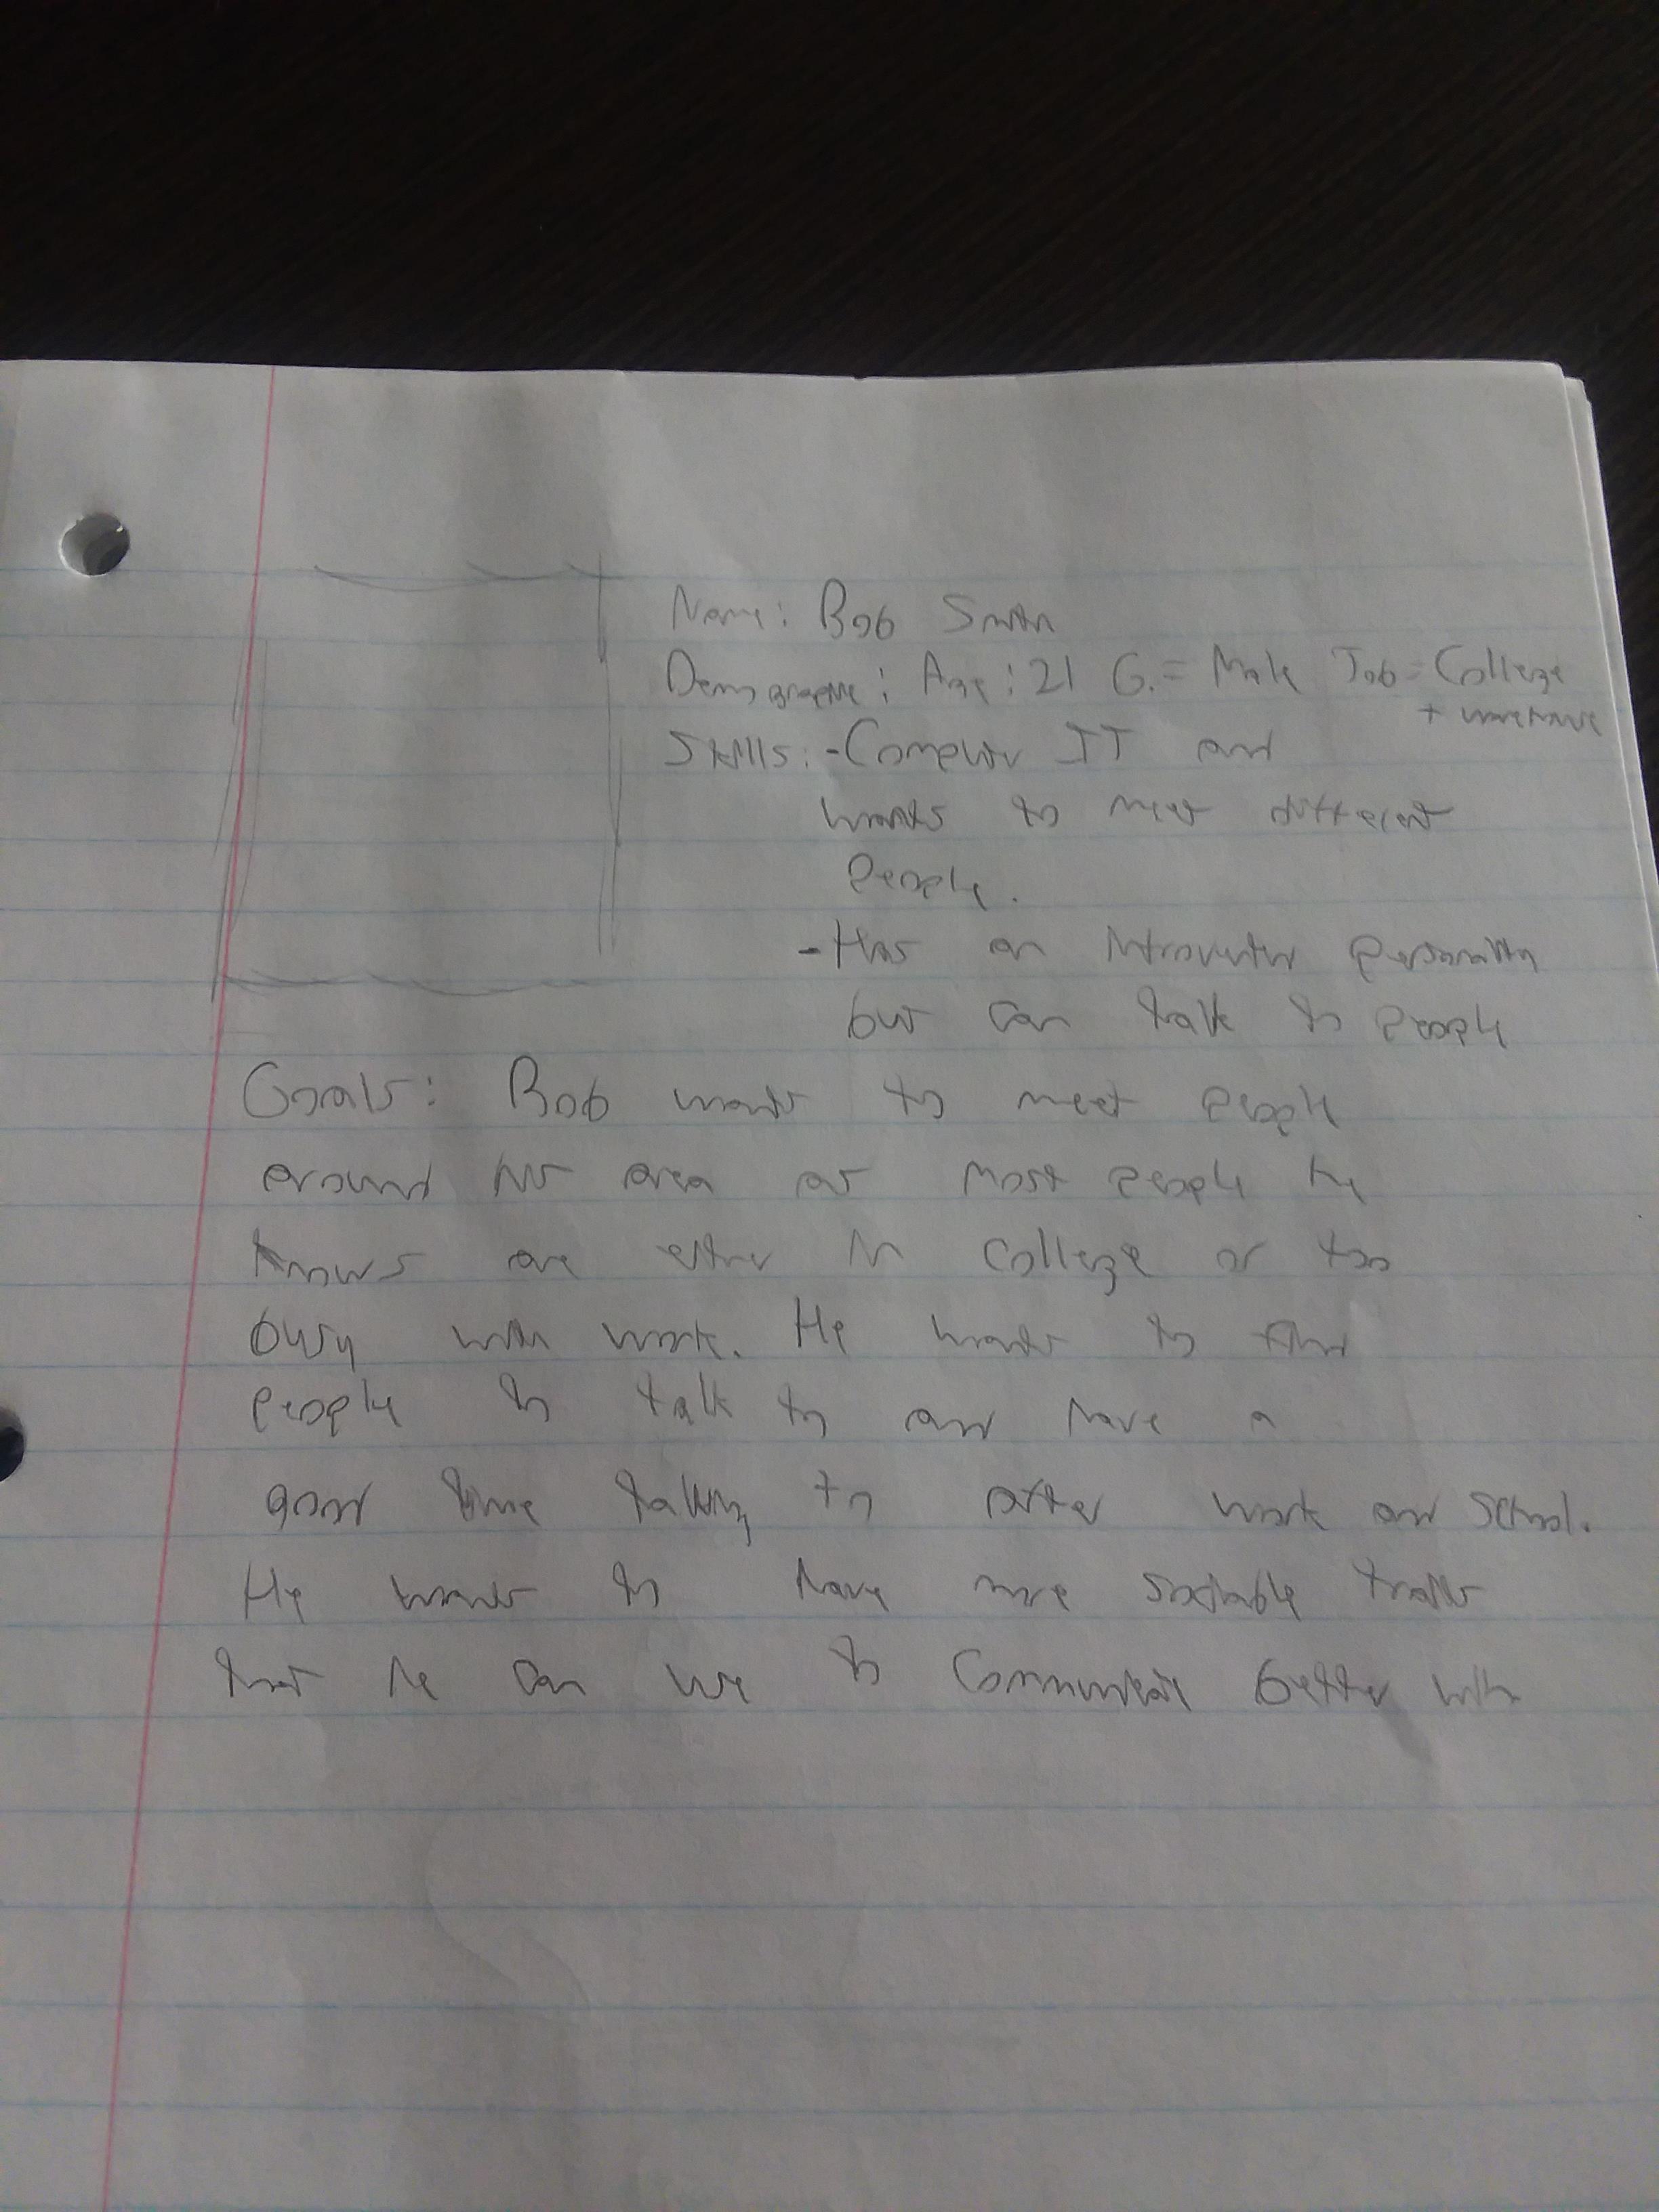 Name: Bob Smith
Demographic: Age: 21 G.= Male Job= College
+
Skills: -Computer IT and
wants to meet different
people.
-Has an introverted personality
but can talk to people
Goals: Bob wants to meet people
around his area as most people he
knows are either in college or too
busy with work. He wants to find
people to talk to and have a
good time talking to after work and school.
He wants to have more sociable traits
that he can use to communicate better with